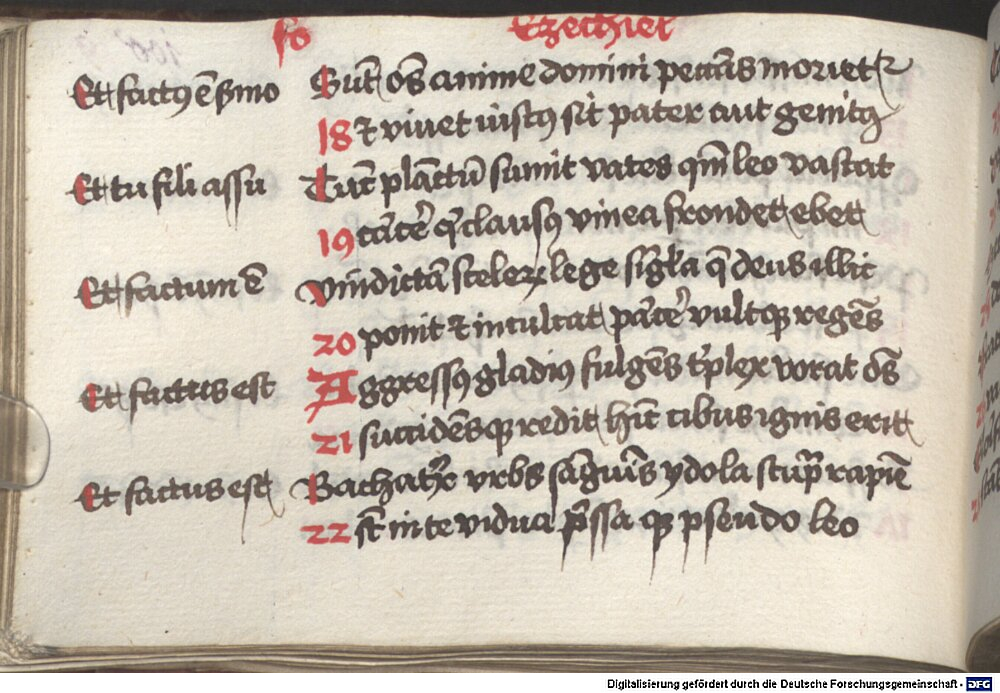 fo Ezechiel
Et factꝰ ē ẜmo Sūt om̄s anime domini peccās morietᷣ
18 ⁊ viuet iustꝰ sit pater aut genitꝰ
Et tu fili assu Tūc plāctū sumit vates qm̄ leo vastat
19 clausꝰ vinea frondet ebet
Et factum ē vindictā sceleꝝ lege sigl̓a q̄ deus illic
20 ponit ⁊ inculcat vultqꝫ regēs
Et factus est Aggressꝰ gladiꝰ fulgēs t̓plex vorat om̄s
21 succidēsqꝫ redit hīc cibus ignis erit
Et factus est Bachatᷣ vrbs sāguīs ydola stupͣ rapīe
22 sūt in te vidua p̄ssa qꝫ pseudo leo
Digitalisierung gefördert durch die Deutsche Forschungsgemeinschaft - DFG